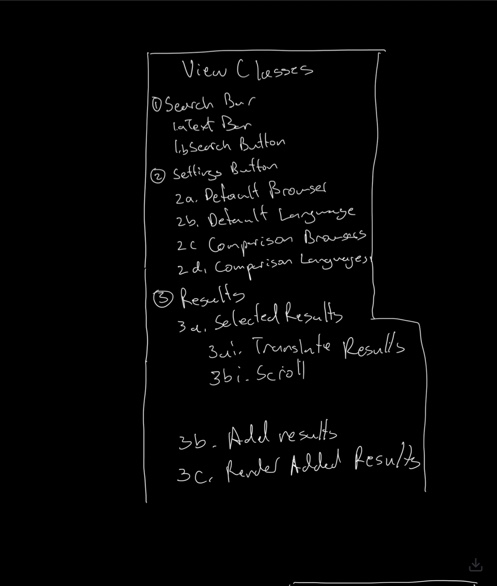 View Classes
① Search Bar
1a Text Bar
1b Search Button
② Settings Button
2a. Default Browser
2b. Default Language
2c Comparison Browsers
2d. Comparison Languages
③ Results
3a. Selected Results
3ai. Translate Results
3bi. Scroll
3b. Add results
3c. Render Added Results